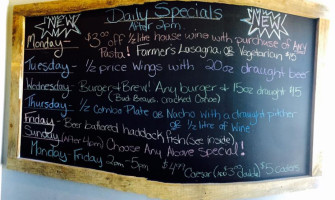 NEW
Daily Specials
NEW
After 2pm
Monday - $3.00 off ½ litre house wine with purchase of Any
Pasta! Farmer's Lasagna, OR Vegetarian
Tuesday - ½ price wings with 20oz draught beer
Wednesday - Burger & Brew! Any burger & 15oz draught
Thursday - ½ Combo Plate or Nacho with a draught pitcher
OR ½ litre of Wine
Friday - Beer battered haddock Fish (see inside)
Sunday (After 4pm) Choose Any Above Special!
Monday Friday 2pm-5pm $4.99 Caesar $5